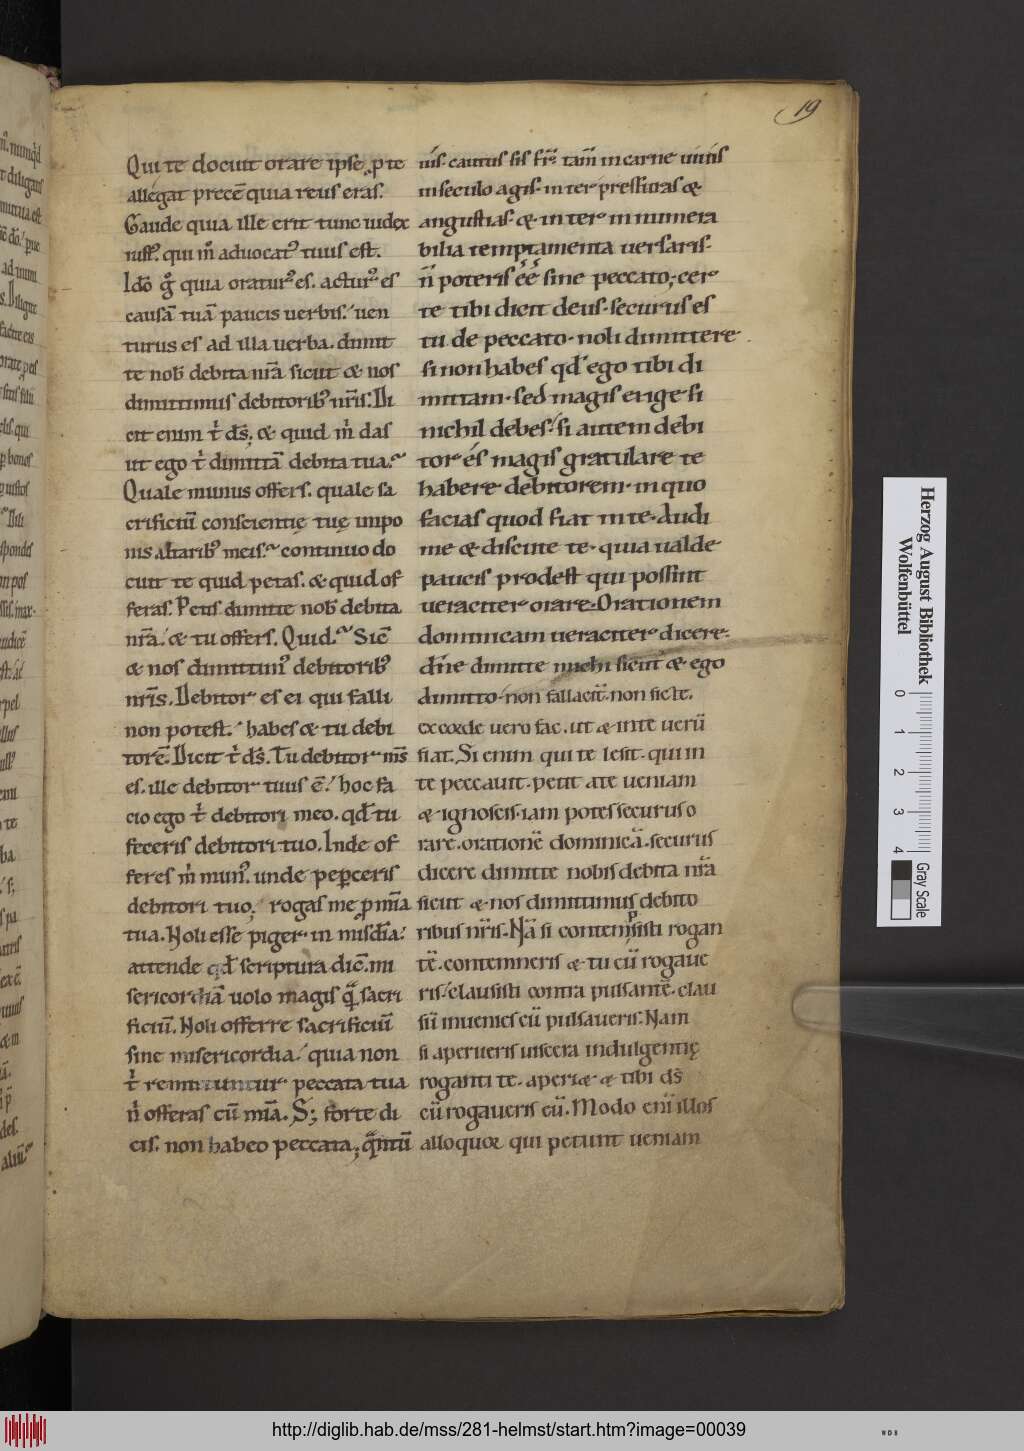 19
Qui te docuit orare ipse p te
allegat precē quia reus eras.
Gaude quia ille erit tunc iudex
iust᷒. qui m̊ aduocat᷒ tuus est.
Idō g̊ quia oratur᷒ es. actur᷒ es
causā tuā paucis uerbis. uen
turus es ad illa uerba. dimit
te nob̄ debita nr̄a sicut & nos
dimittimus debitorib᷒ nr̄is. Di
cit enim t̊ ds̄; & quid m̊ das
ut ego t̊ dimittā debita tua.
Quale munus offers. quale sa
crificiū conscientię tuę impo
nis altarib᷒ meis. continuo do
cuit te quid petas. & quid of
feras. Petis dimitte nob̄ debita
nr̄a. & tu offers. Quid. Sic̄
& nos dimittim᷒ debitorib᷒
nr̄is. Debitor es ei qui falli
non potest. habes & tu debi
torē. Dicit t̊ ds̄. Tu debitor ms̄
es. ille debitor tuus ē. hoc fa
cio ego t̊ debitori meo. qđ tu
feceris debitori tuo. Inde of
feres m̊ mun᷒. unde peꝑceris
debitori tuo. rogas me ꝓ mīa
tua. Noli esse piger in mis̄dia.
attende qđ scriptura dic̄. mi
sericordiā uolo magis q̄ sacri
ficiū. Noli offerre sacrificiū
sine misericordia. quia non
t̊ remittuntur peccata tua
n̊ offeras cū mīa. S; forte di
cis. non habeo peccata; q̄ntū
uis. cautus sis fr̄. tam̄ in carne uiuis
in seculo agis. inter pressuras &
angustias. & inter innumera
bilia temptamenta uersaris.
n̄ poteris ēē sine peccato; cer
te tibi dicit deus. securus es
tu de peccato. noli dimittere
si non habes qđ ego tibi di
mittam. sed magis erige si
nichil debes. si autem debi
tor es magis gratulare te
habere debitorem. in quo
facias quod fiat in te. Audi
me & discute te. quia ualde
paucis prodest qui possint
ueraciter orare. Orationem
dominicam ueraciter dicere.
dn̄e dimitte michi sicut & ego
dimitto. non fallacit̄. non ficte.
ex corde uero fac. ut & in te uerū
fiat. Si enim qui te lesit. qui in
te peccauit. petit a te ueniam
& ignoscis. iam potes securus o
rare. orationē dominicā. securus
dicere dimitte nobis debita nr̄a
sicut & nos dimittimus debito
ribus nr̄is. Nā si contempsisti rogan
tē. contemneris & tu cū rogaue
ris. clausisti contra pulsantē. clau
sū inuenies cū pulsaueris. Nam
si aperueris uiscera indulgentię
roganti te. aperi& & tibi ds̄
cū rogaueris eū. Modo enī illos
alloquor qui petunt ueniam
Herzog August Bibliothek
Wolfenbüttel
0 1 2 3 4
Gray Scale
http://diglib.hab.de/mss/281-helmst/start.htm?image=00039